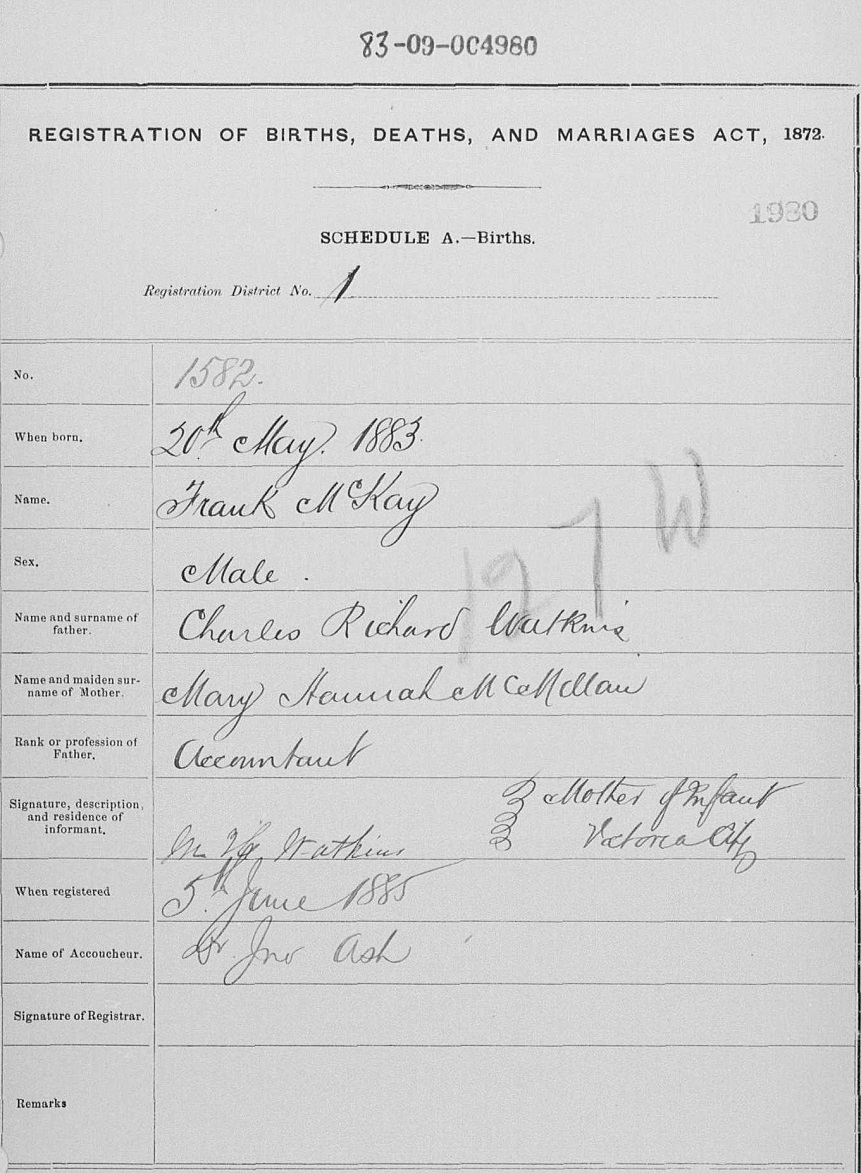 83-09-004980
REGISTRATION OF BIRTHS, DEATHS, AND MARRIAGES ACT, 1872.
1980
SCHEDULE A.—Births.
Registration District No. 1
No. 1582.
When born. 20th May. 1883.
Name. Frank McKay
127 W
Sex. Male.
Name and surname of father. Charles Richard Watkins
Name and maiden sur-
name of Mother. Mary Hannah McMillan
Rank or profession of
Father. Accountant
Signature, description,
and residence of
informant. Watkins Mother of Infant
Victoria City
When registered 5th June 1885
Name of Accoucheur. Dr. Jno Ash
Signature of Registrar.
Remarks